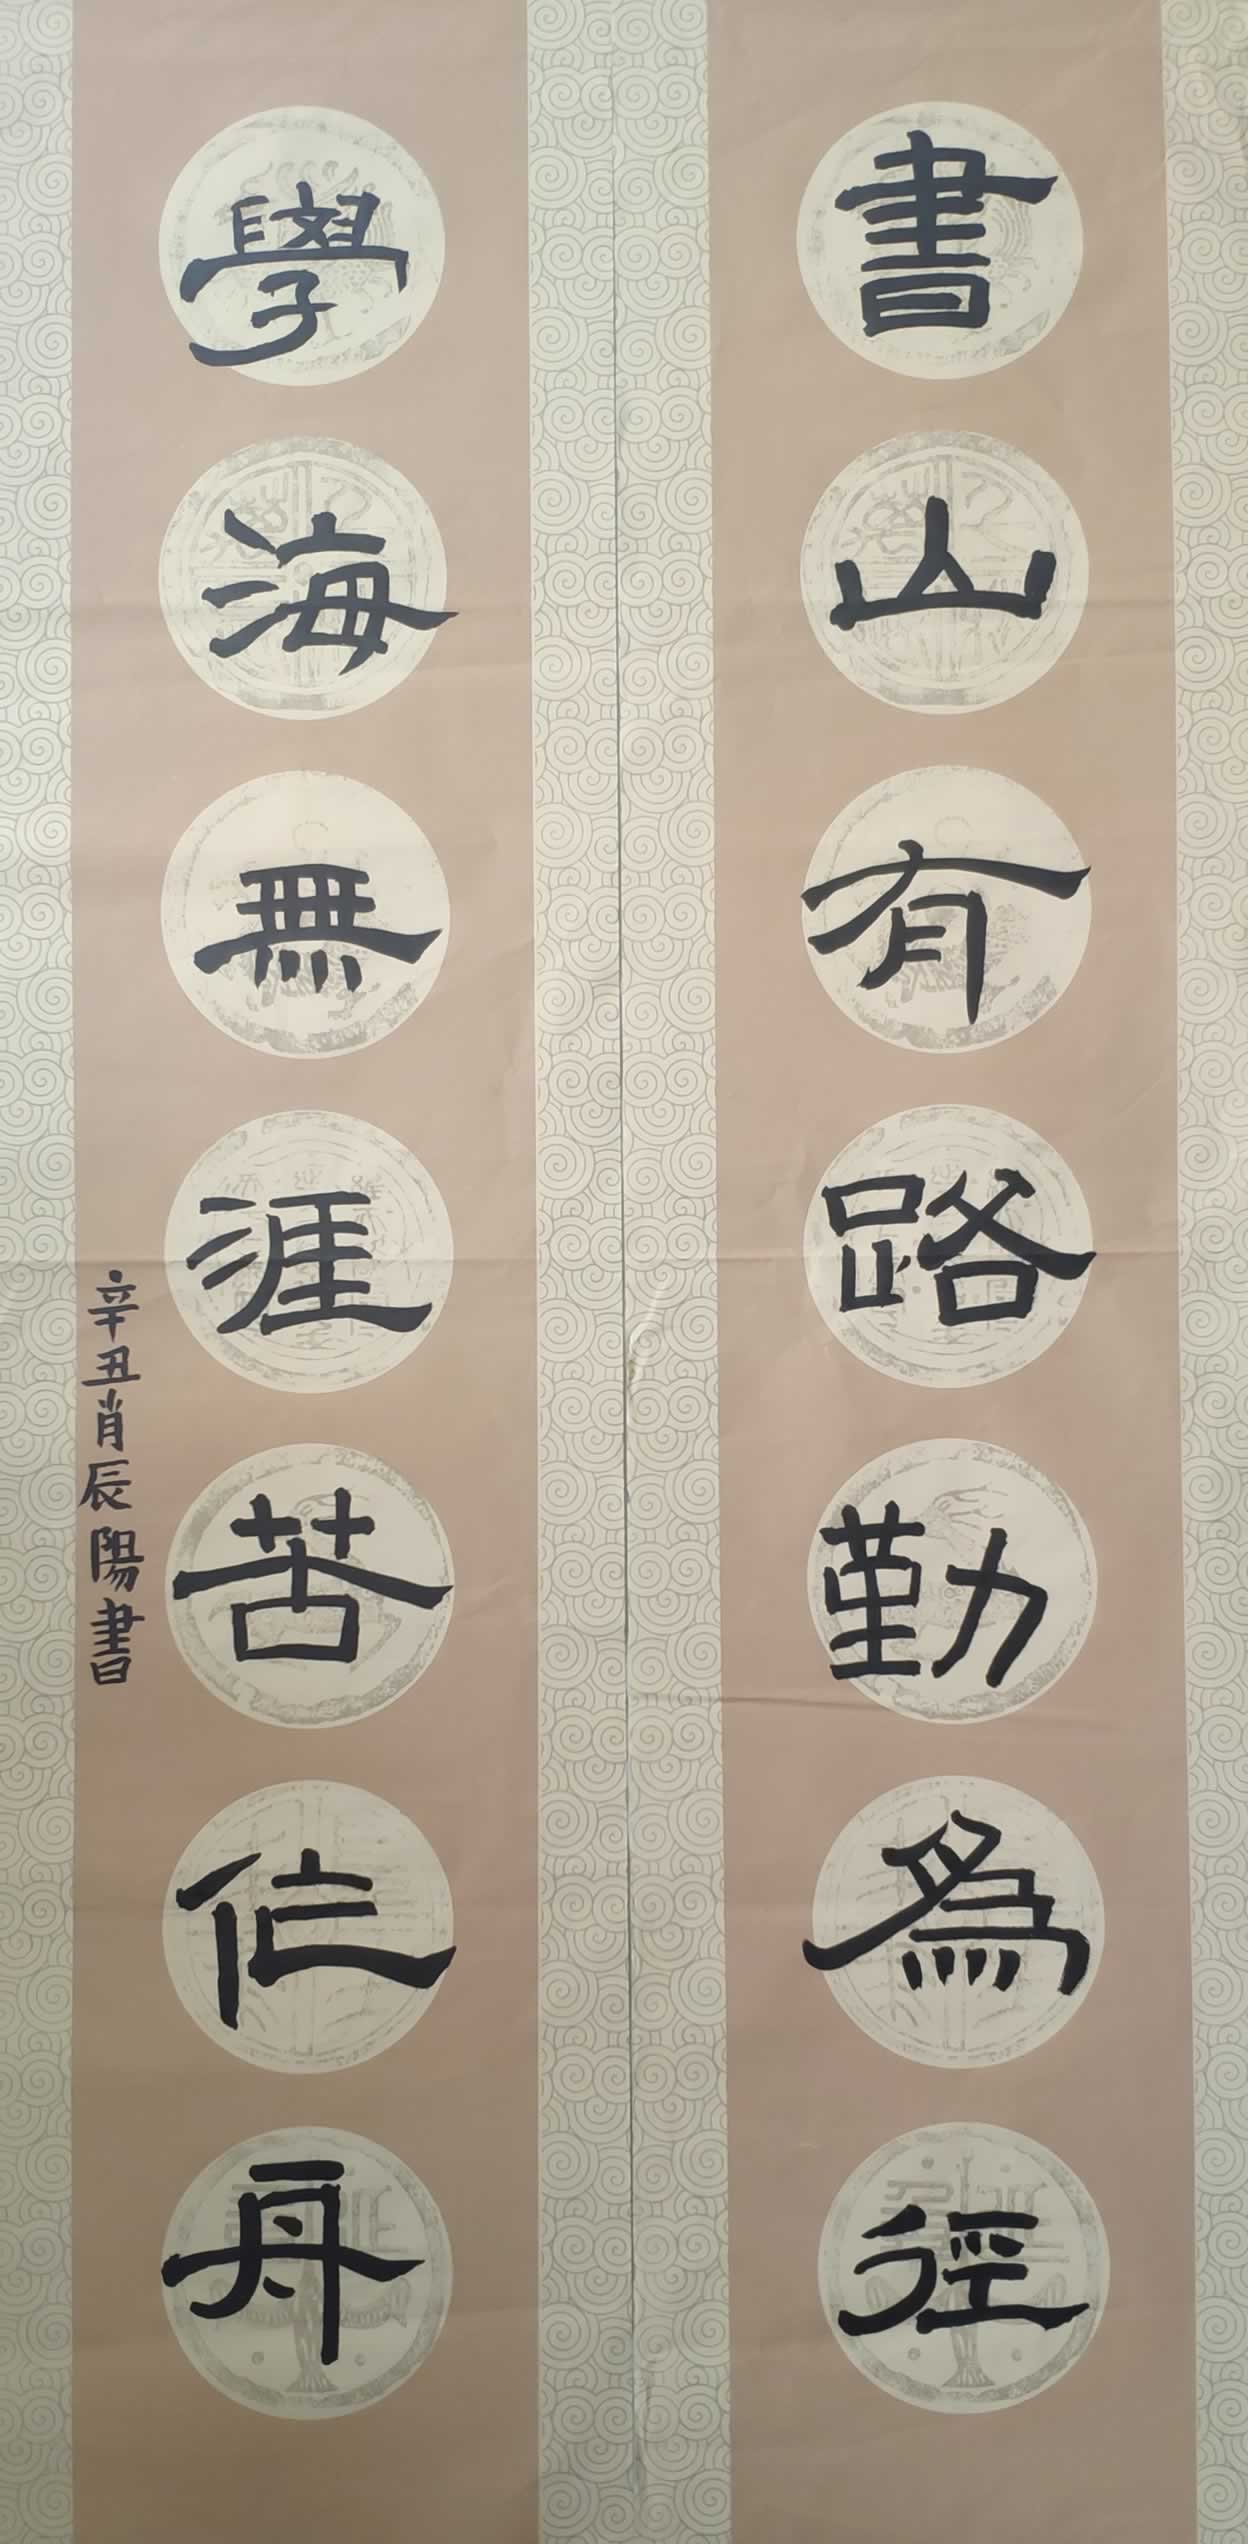 書山有路勤為徑
學海無涯苦作舟
辛丑肖辰陽書